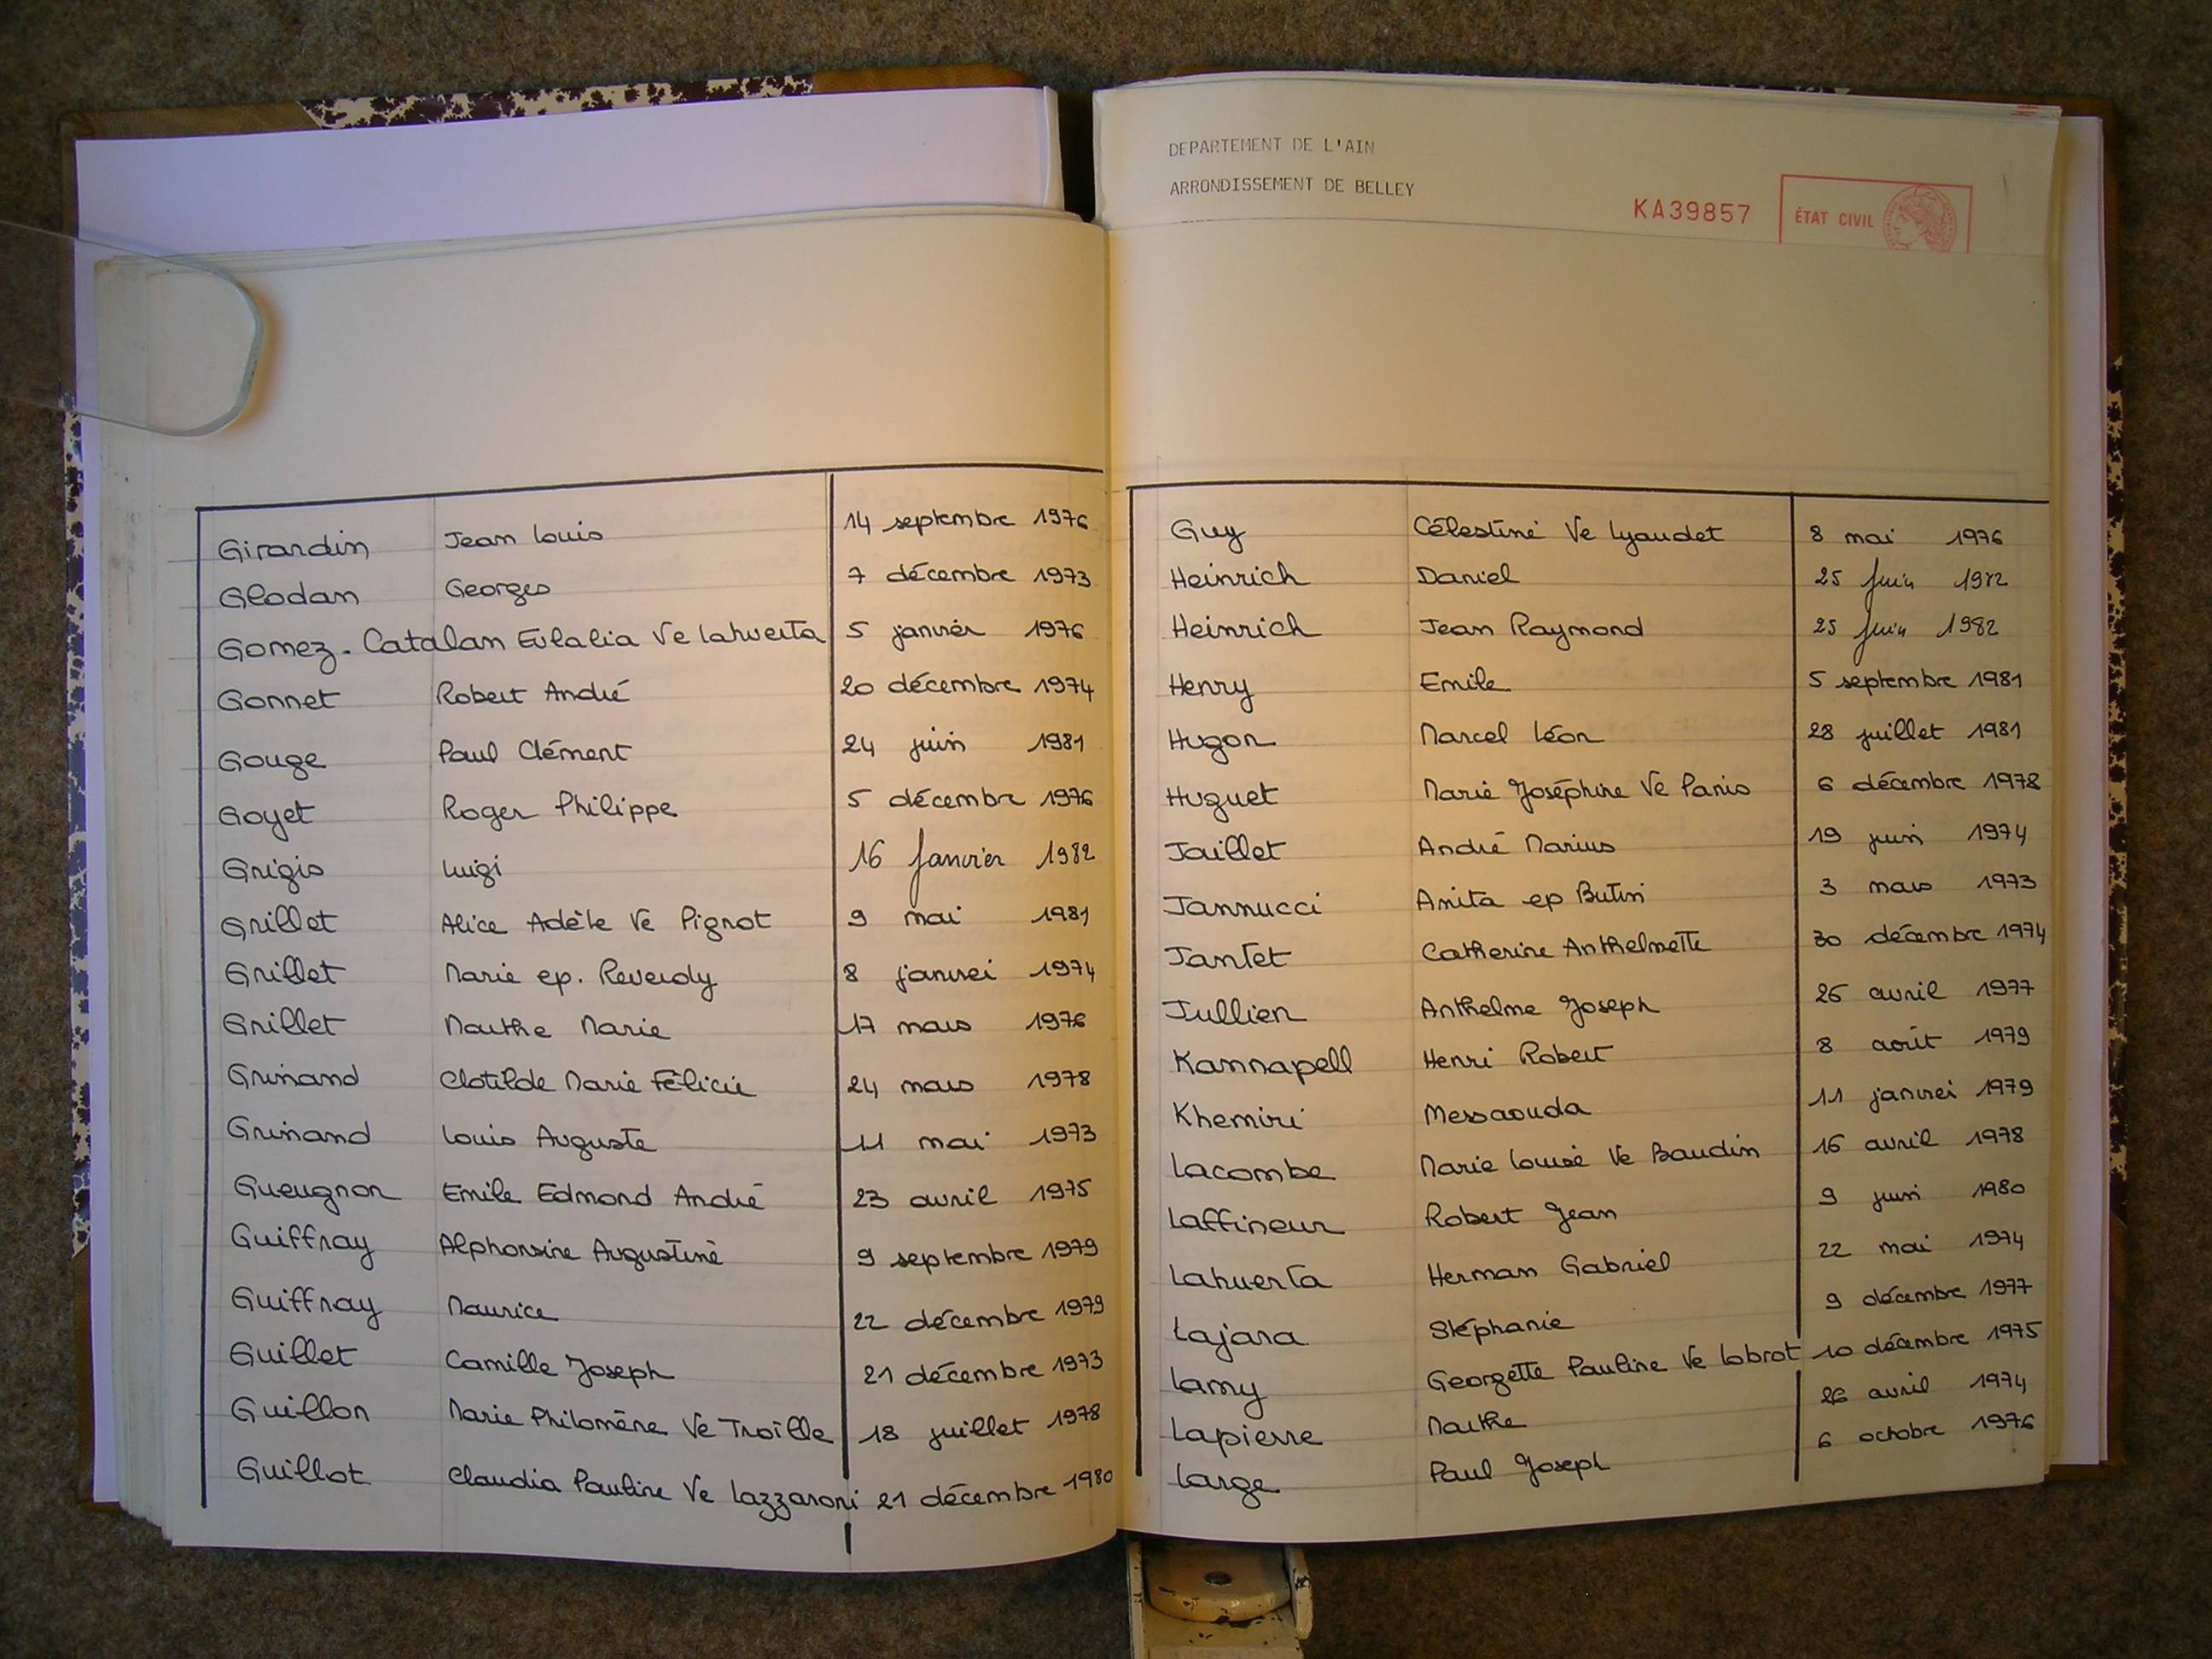 Girardin Jean Louis 14 septembre 1976
Glodan Georges 7 décembre 1973
Gomez-Catalan Eulalia Ve Lahuerta 5 janvier 1976
Gonnet Robert André 20 décembre 1974
Gouge Paul Clément 24 juin 1981
Goyet Roger Philippe 5 décembre 1976
Grigis Luigi 16 Janvier 1982
Grillet Alice Adèle Ve Pignot 9 mai 1981
Grillet Marie ep. Reverdy 8 janvier 1974
Grillet Marthe Marie 17 mars 1976
Grinand Clotilde Marie Félicie 24 mars 1978
Grinand Louis Auguste 11 mai 1973
Gueugnon Emile Edmond André 23 avril 1975
Guiffray Alphonsine Augustine 9 septembre 1979
Guiffray Maurice 22 décembre 1979
Guillet Camille Joseph 21 décembre 1973
Guillon Marie Philomène Ve Troïlle 18 juillet 1978
Guillot Claudia Pauline Ve Lazzaroni 21 décembre 1980
DEPARTEMENT DE L'AIN
ARRONDISSEMENT DE BELLEY
KA39857 ÉTAT CIVIL
Guy Célestine Ve Lyaudet 8 mai 1976
Heinrich Daniel 25 Juin 1982
Heinrich Jean Raymond 25 Juin 1982
Henry Emile 5 septembre 1981
Hugon Marcel Léon 28 juillet 1981
Huguet Marie Joséphine Ve Panis 6 décembre 1978
Jaillet André Marius 19 juin 1974
Jannucci Anita ep Butin 3 mars 1973
Jantet Catherine Anthelmette 30 décembre 1974
Jullien Anthelme Joseph 26 avril 1977
Kannapell Henri Robert 8 août 1979
Khemiri Messaouda 11 janvier 1979
Lacombe Marie Louise Ve Baudin 16 avril 1978
Laffineur Robert Jean 9 juin 1980
Lahuerta Herman Gabriel 22 mai 1974
Lajara Stéphanie 9 décembre 1977
Lamy Georgette Pauline Ve Lobrot 10 décembre 1975
Lapierre Marthe 26 avril 1974
Large Paul Joseph 6 octobre 1976